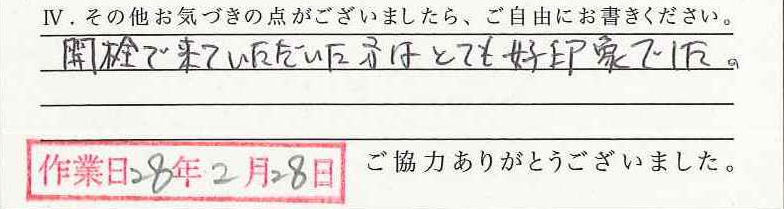 Ⅳ．その他お気づきの点がございましたら、ご自由にお書きください。
開栓で来ていただいた方はとても好印象でした。
作業日28年2月28日
ご協力ありがとうございました。